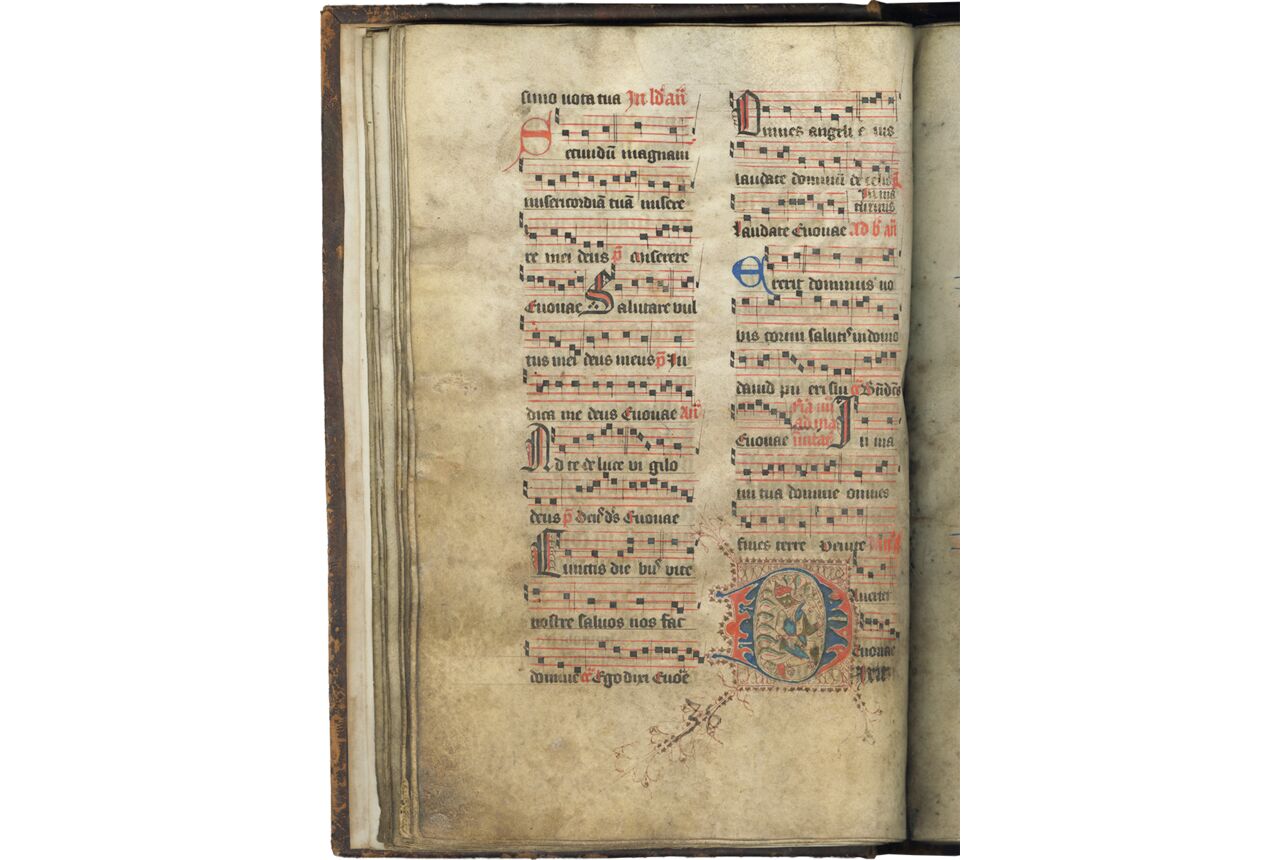 simo uota tua In ld' an̄
Secundū magnam
misericordiā tuā misere
re mei deus p̄ miserere
Euouae Salutare vul
tus mei deus meus p̄ Iu
dica me deus Euouae An̄
Ad te de luce vi gilo
deus p̄ Euouae
Cunctis die bus vite
nostre saluos nos fac
domine Ego dixi Euoē
Omnes angeli e ius
laudate dominū de celis
laudate Euouae Ad b' an̄
Erexit dominus no
bis cornu salutis in domo
dauid pu eri sui
Euouae In ma
nu tua domine omnes
fines terre Venite
Auertet
Euouae
36